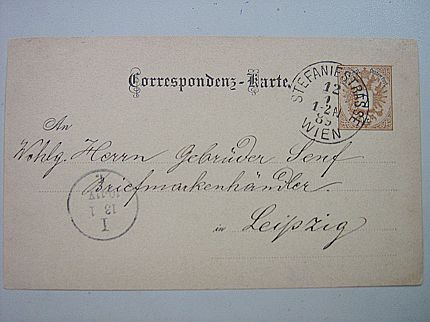 Correspondenz-Karte.
STEFANIESTRASSE
12
1
1-2N
85
WIEN
An
Wohlg. Herrn Gebrüder Senf
Briefmarkenhändler
in Leipzig
I
13 1